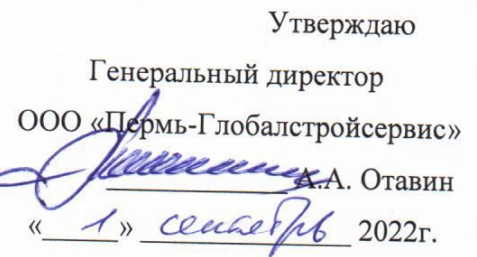 Утверждаю
Генеральный директор
ООО «Пермь-Глобалстройсервис»
А.А. Отавин
«1» сентябрь 2022г.